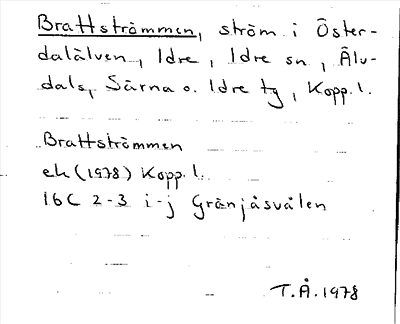 Brattströmmen, ström i Öster-
dalälven, Idre, Idre sn, Älv-
dals, Särna o. Idre tg, Kopp.l.
Brattströmmen
ek (1978) Kopp.l.
16C 2-3 i-j Gränjåsvålen
T.Å.1978